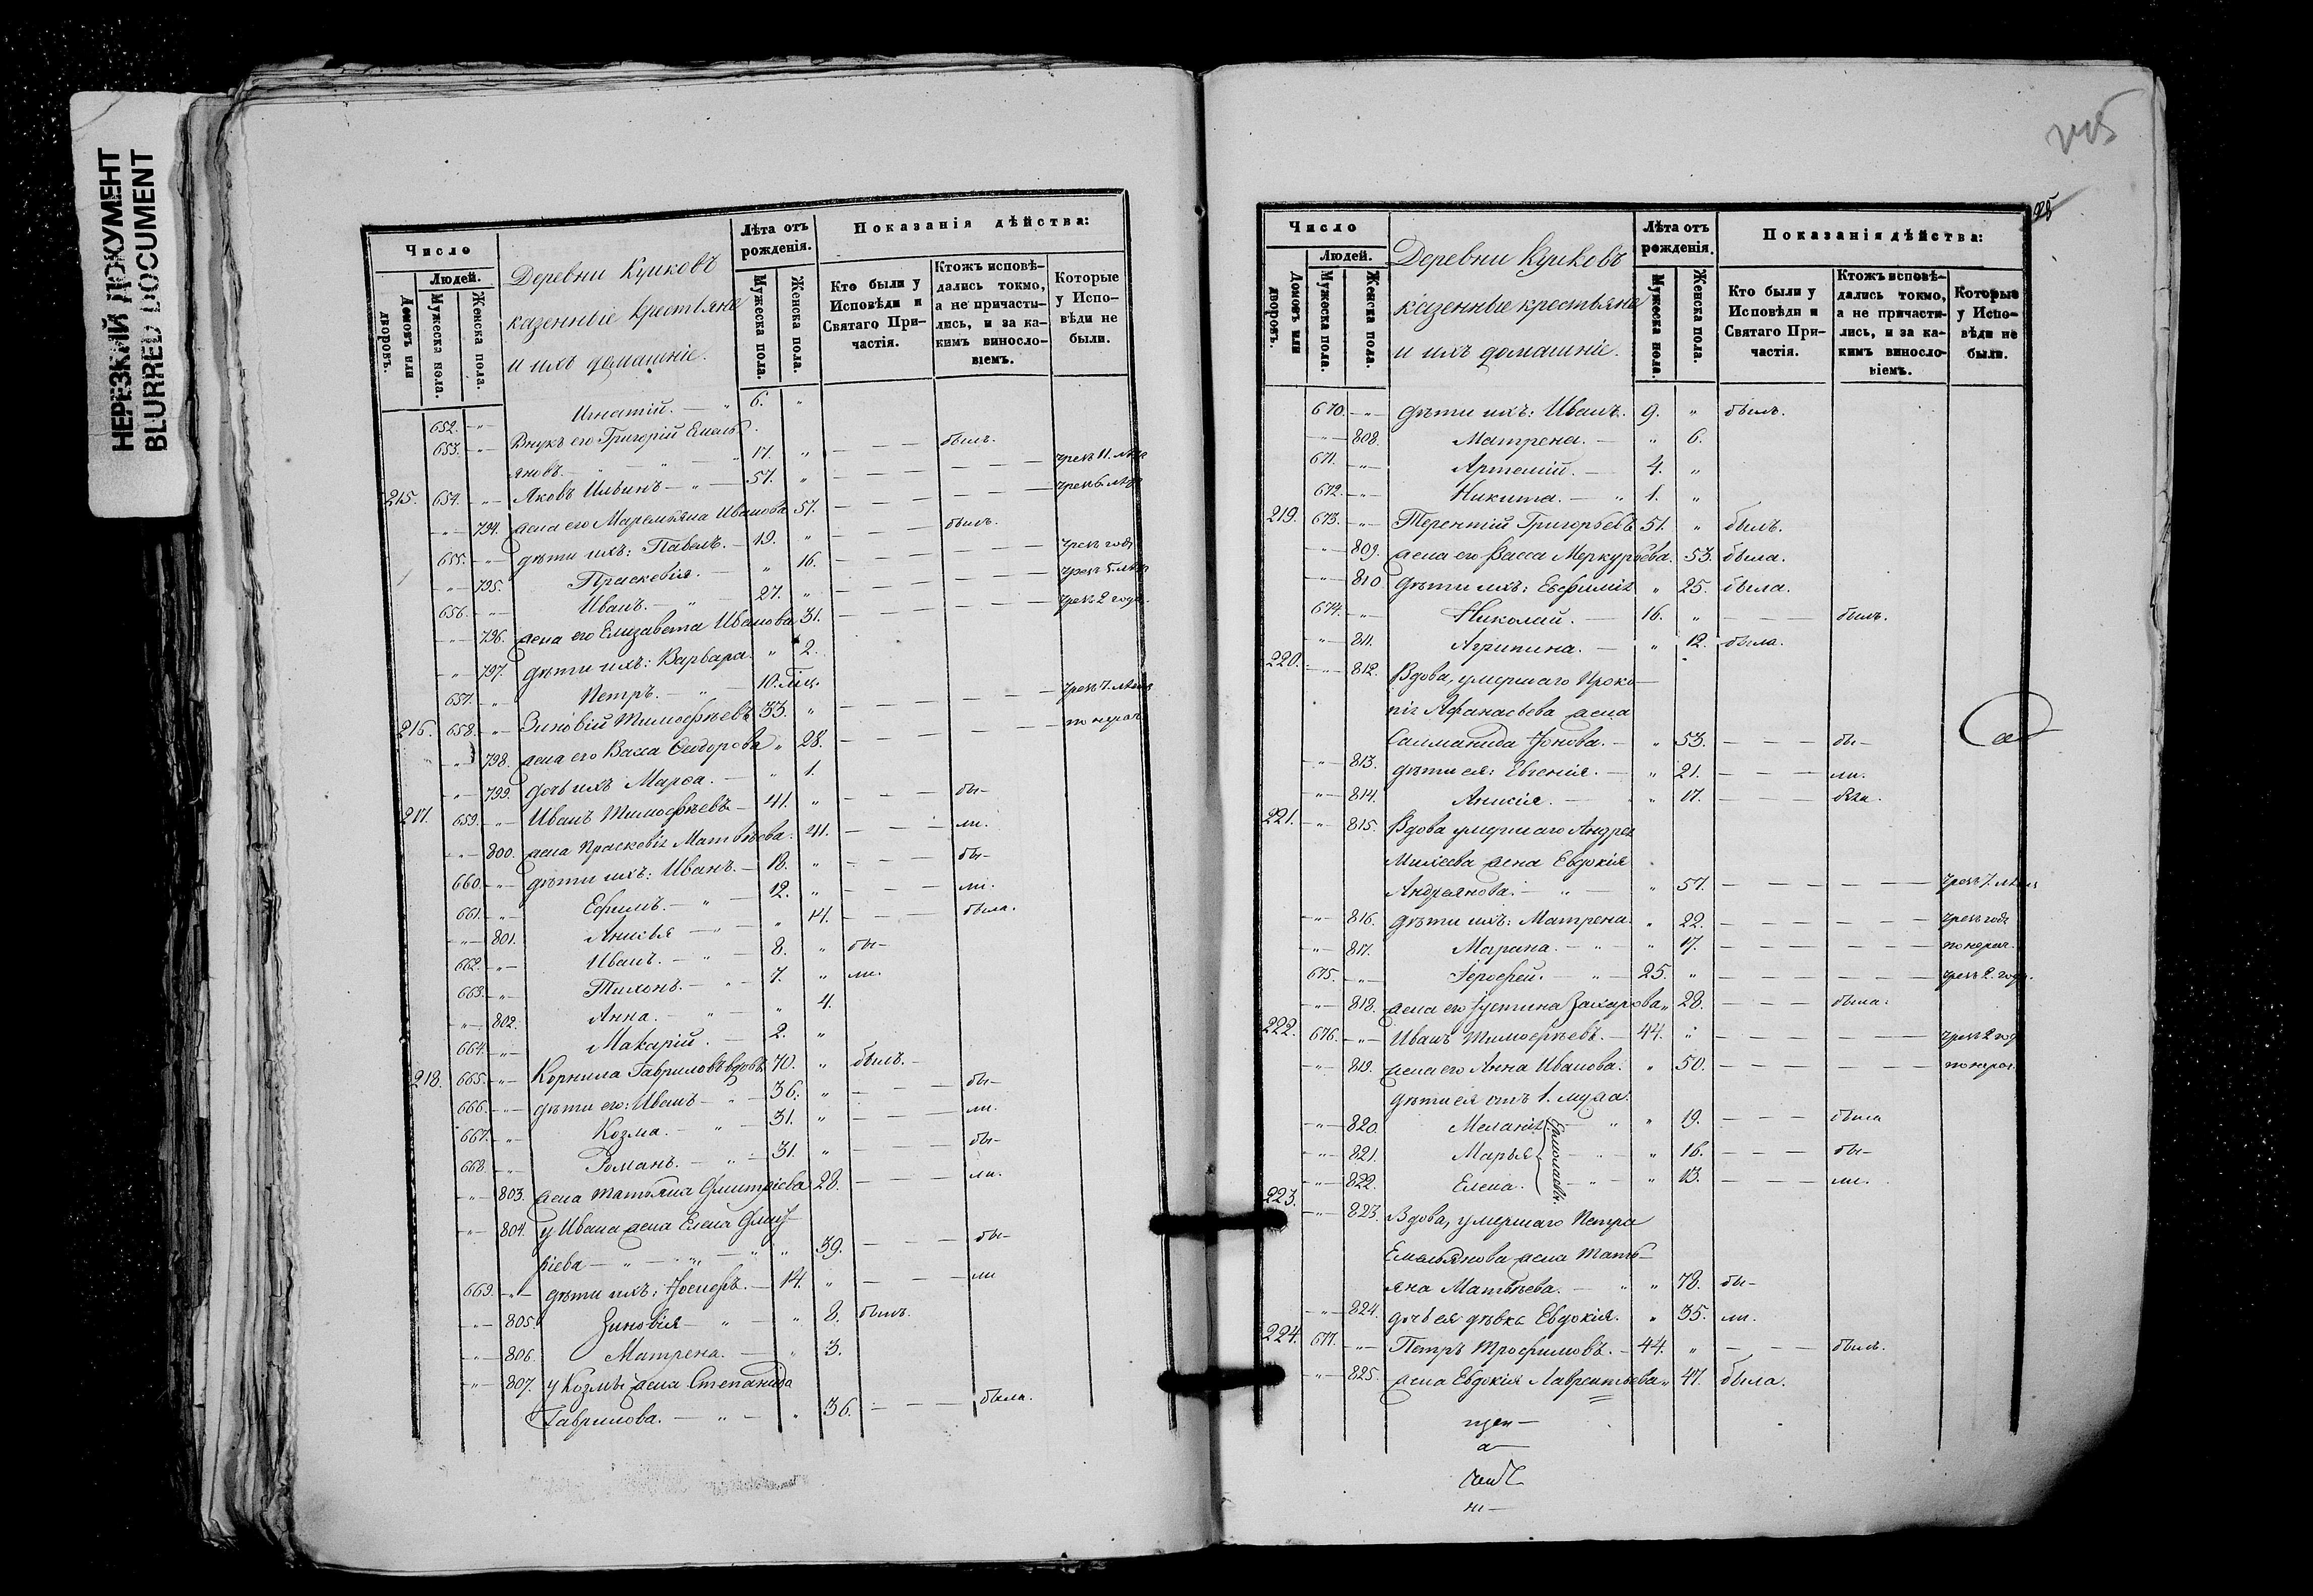 НЕРЕЗКИЙ ДОКУМЕНТ
BLURRED DOCUMENT
Число
Людей.
Домовъ или дворовъ.
Мужеска пола.
Женска пола.
Деревни Куиковъ
казенные крестьяне
и ихъ домашніе.
Лѣта отъ рожденія.
Мужеска пола.
Женска пола.
Показанія дѣйства:
Кто были у Исповѣди и Святаго Причастія.
Ктожъ исповѣдались токмо, а не причастились, и за какимъ винословіемъ.
Которые у Исповѣди не были.
652. Игнатій. 6.
653. Внукъ его Григорій Емель
яновъ. 17. былъ.
215. 654. Яковъ Ильинъ 57. чрезъ 11. лѣтъ
794. жена его Маремьяна Иванова 57. чрезъ 6 лѣтъ
655. дѣти ихъ: Павелъ. 19. былъ.
795. Праскевія. 16. чрезъ годъ
656. Иванъ. 27. чрезъ 5. лѣтъ
796. жена его Елизавета Иванова 31. чрезъ 2 года.
797. дѣти ихъ: Варвара. 2.
657. Петръ. 10.
216. 658. Зиновій Тимофѣевъ 33. чрезъ 7. лѣтъ
798. жена его Васса Ѳеодорова 28. по нерач.
799. дочь ихъ Марѳа. 1.
217. 659. Иванъ Тимофѣевъ 41. бы-
800. жена Праскевія Матвѣева. 41. ли.
660. дѣти ихъ: Иванъ. 18. бы-
661. Ефимъ. 12. ли.
801. Анисья 14. была.
662. Иванъ. 8. бы-
663. Тихонъ. 7. ли.
802. Анна. 4.
664. Макарій. 2.
218. 665. Корнила Гавриловъ вдовъ 70. былъ.
666. дѣти его: Иванъ 36. бы-
667. Козма. 31. ли.
668. Романъ. 31. бы-
803. жена Татьяна Дмитріева 28. ли.
804. у Ивана жена Елена Дмит-
ріева 39. бы-
669. дѣти ихъ: Іосифъ. 14. ли
805. Зиновія 8. былъ.
806. Матрена. 3.
807. у Козмы жена Степанида
Гаврилова. 36. была.
Число
Людей.
Домовъ или дворовъ.
Мужеска пола.
Женска пола.
Деревни Куиковъ
казенные крестьяне
и ихъ домашніе.
Лѣта отъ рожденія.
Мужеска пола.
Женска пола.
Показанія дѣйства:
Кто были у Исповѣди и Святаго Причастія.
Ктожъ исповѣдались токмо, а не причастились, и за какимъ винословіемъ.
Которые у Исповѣди не были.
670. дѣти ихъ: Иванъ. 9. былъ.
808. Матрена. 6.
671. Артемій. 4.
672. Никита. 1.
219. 673. Терентій Григорьевъ 51. былъ.
809. жена его Васса Меркурьева. 53. была.
810 дѣти ихъ: Евфимія 25. была.
674. Николай. 16. былъ.
811. Агрипина. 12. была.
220. 812. Вдова, умершаго Проко-
пія Афанасьева жена
Саломанида Іонова. 53. бы-
813. дѣти ея: Евгенія. 21. ли.
814. Анисія. 17. была.
221. 815. Вдова умершаго Андрея
Михеева жена Евдокія
Андреянова. 57. чрезъ 7. лѣтъ
816. дѣти ихъ: Матрена. 22. чрезъ годъ
817. Марина. 17. по нерач.
675. Іерофей. 25. чрезъ 2. года.
818. жена его Іустина Захарова 28. была.
222. 676. Иванъ Тимофѣевъ. 44. чрезъ 2 год
819. жена его Анна Иванова. 50. по нерач.
дѣти ея отъ 1. мужа:
820. Меланія 19. была
821. Марья 16. бы-
822. Елена. 13. ли.
Ермолаевы
223. 823. Вдова, умершаго Петра
Емельянова жена Тать-
яна Матвѣева. 78. бы-
824. дочь ея дѣвка Евдокія. 35. ли.
224. 677. Петръ Трофимовъ. 44. былъ.
825. жена Евдокія Лаврентьева 47. была.